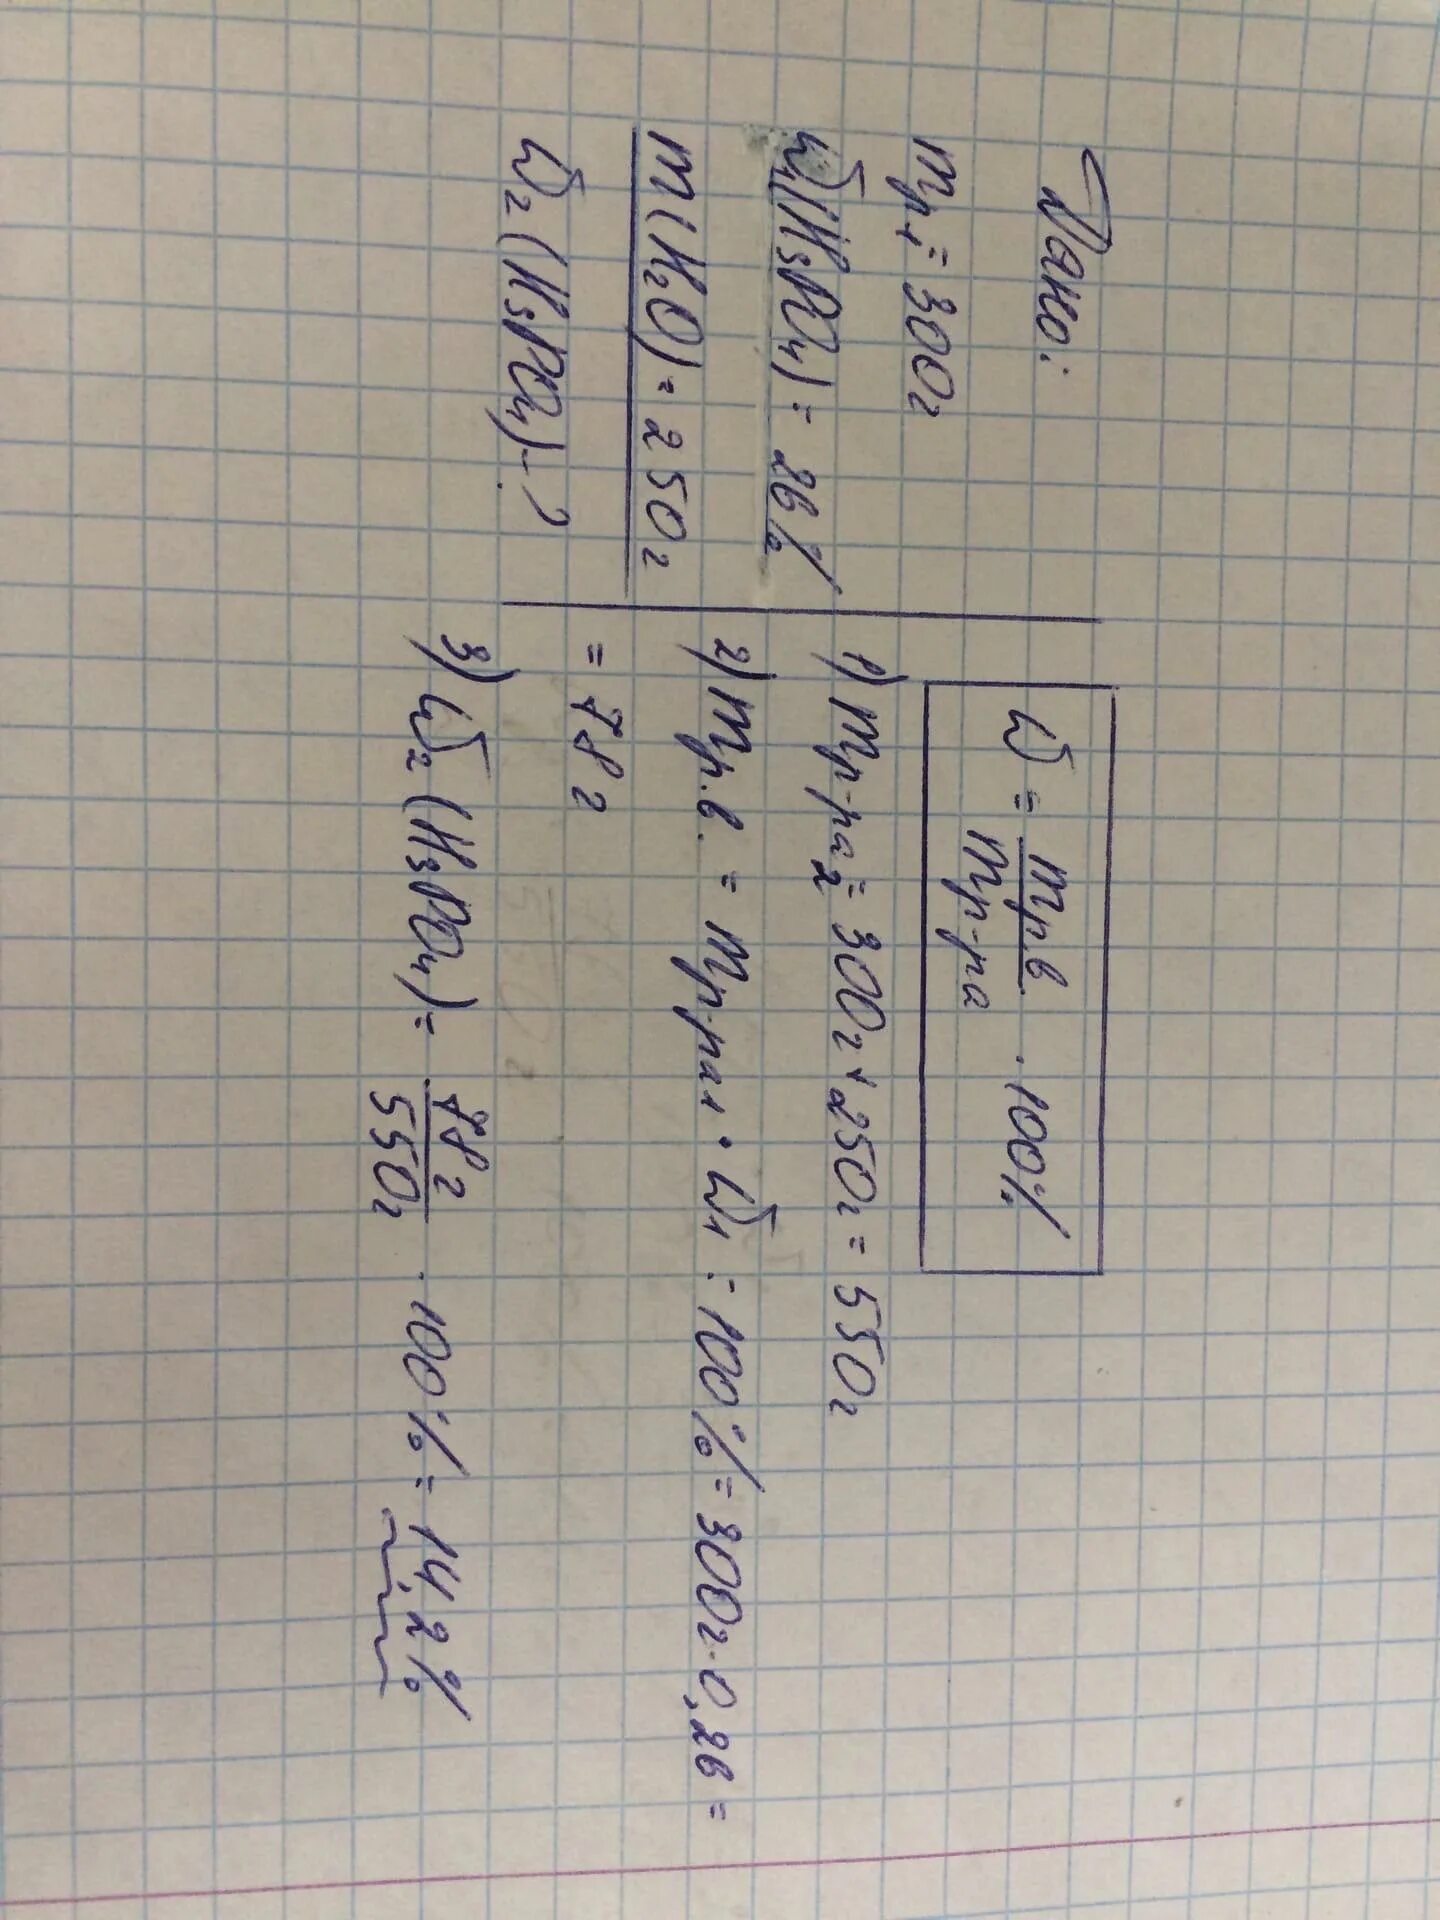 Дано:
mр₁ = 300г
ω₁(H₃PO₄) = 26%
m(H₂O) = 250г
ω₂(H₃PO₄) - ?
ω = mр.в. / mр-ра · 100%
1) mр-ра₂ = 300г + 250г = 550г
2) mр.в. = mр-ра₁ · ω₁ : 100% = 300г · 0,26 =
= 78г
3) ω₂(H₃PO₄) = 78г / 550г · 100% = 14,2%